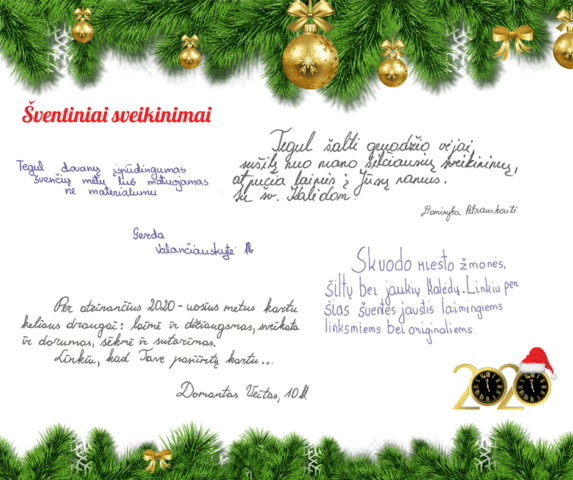 Šventiniai sveikinimai
Tegul dovanų įspūdingumas
švenčių metu bus matuojamas
ne materialumu
Gerda
Valančiauskytė
Tegul šalti gruodžio vėjai,
sušilę nuo mano šilčiausių sveikinimų,
atpučia laimės į Jūsų namus.
Su šv. Kalėdom!
Skuodo miesto žmonės,
šiltų bei jaukių Kalėdų. Linkiu per
šias šventes jaustis laimingiems
linksmiems bei originaliems
Per ateinančius 2020-uosius metus kartu
keliaus draugai: laimė ir džiaugsmas, sveikata
ir darumas, sėkmė ir sutarimas.
Linkiu, kad Tave pasiimtų kartu...
Domantas Veitas, 10
2020